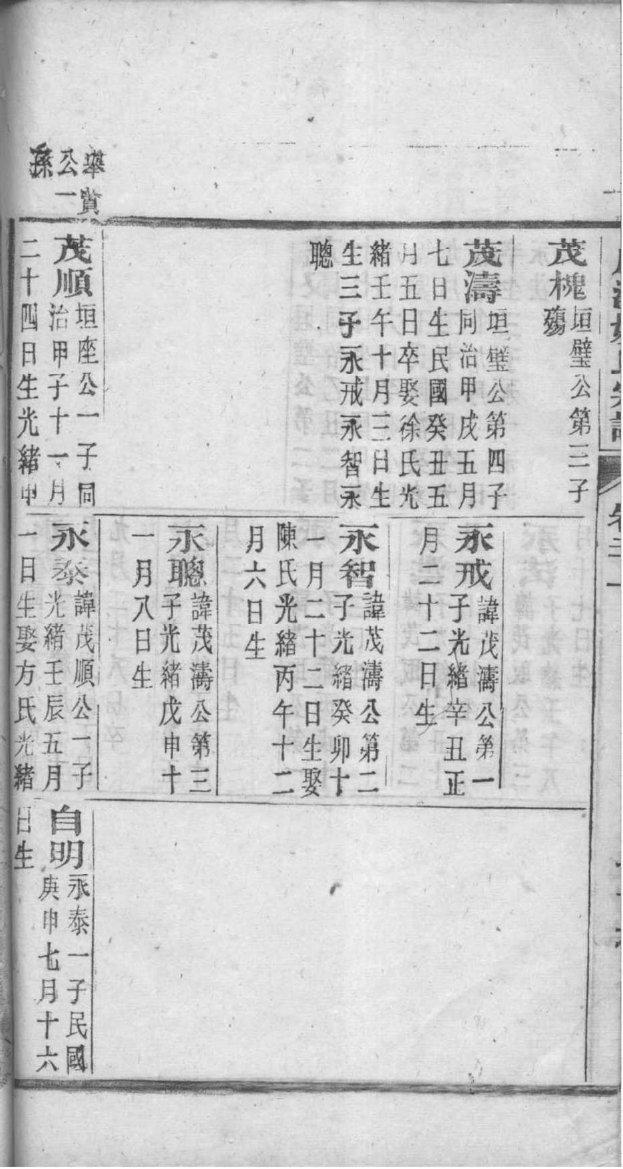 茂槐
垣璧公第三子
殤
茂濤
垣璧公第四子
同治甲戌五月
七日生民國癸丑五
月五日卒娶徐氏光
緒壬午十月三日生
生三子永戒永智永
聰
永戒
諱茂濤公第一
子光緒辛丑正
月二十二日生
永智
諱茂濤公第二
子光緒癸卯十
一月二十二日生娶
陳氏光緒丙午十二
月六日生
永聰
諱茂濤公第三
子光緒戊申十
一月八日生
公一
孫
茂順
垣座公一子同
治甲子十一月
二十四日生光緒甲
永泰
諱茂順公一子
光緒壬辰五月
一日生娶方氏光緒
自明
永泰一子民國
庚申七月十六
日生